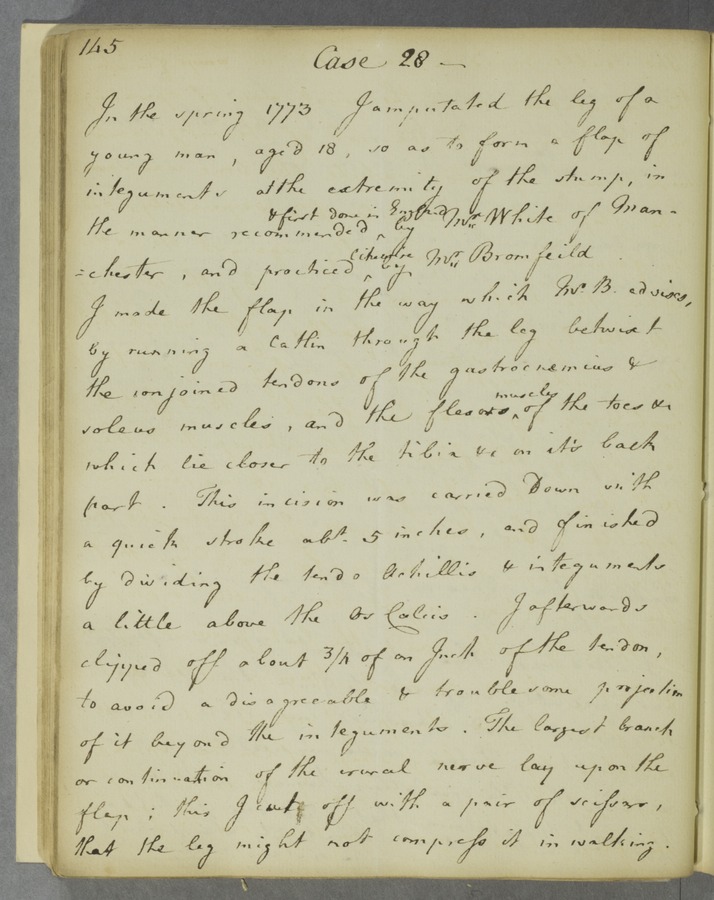 145
Case 28 —
In the spring 1773 I amputated the leg of a
young man, aged 18, so as to form a flap of
integuments at the extremity of the stump, in
& first done in England
the manner recommended ^ by Mr. White of Man-
likewise
=chester, and practiced ^ by Mr. Bromfeild.
I made the flap in the way which Mr. B. advises,
by running a Catlin through the leg betwixt
the conjoined tendons of the gastrocnemius &
muscles
soleus muscles, and the flexors ^ of the toes &c
which lie closer to the tibia &c on it's back
part. This incision was carried Down with
a quick stroke abt. 5 inches, and finished
by dividing the tendo Achillis & integuments
a little above the Os Calcis. I afterwards
clipped off about 3/4 of an Inch of the tendon,
to avoid a disagreeable & troublesome projection
of it beyond the integuments. The largest branch
or continuation of the crural nerve lay upon the
flap; this I cut off with a pair of scissars,
that the leg might not compress it in walking.